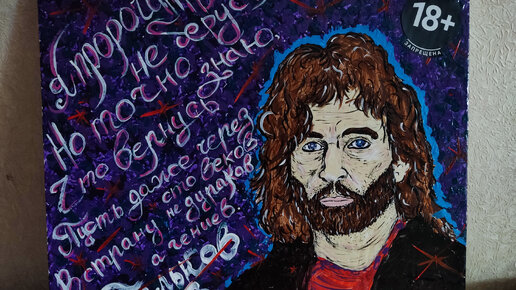 Я пророчить
не берусь,
Но точно знаю,
что вернусь
Пусть даже через
сто веков
В страну не дураков
а гениев
Тальков
18+
ЗАПРЕЩЕНА